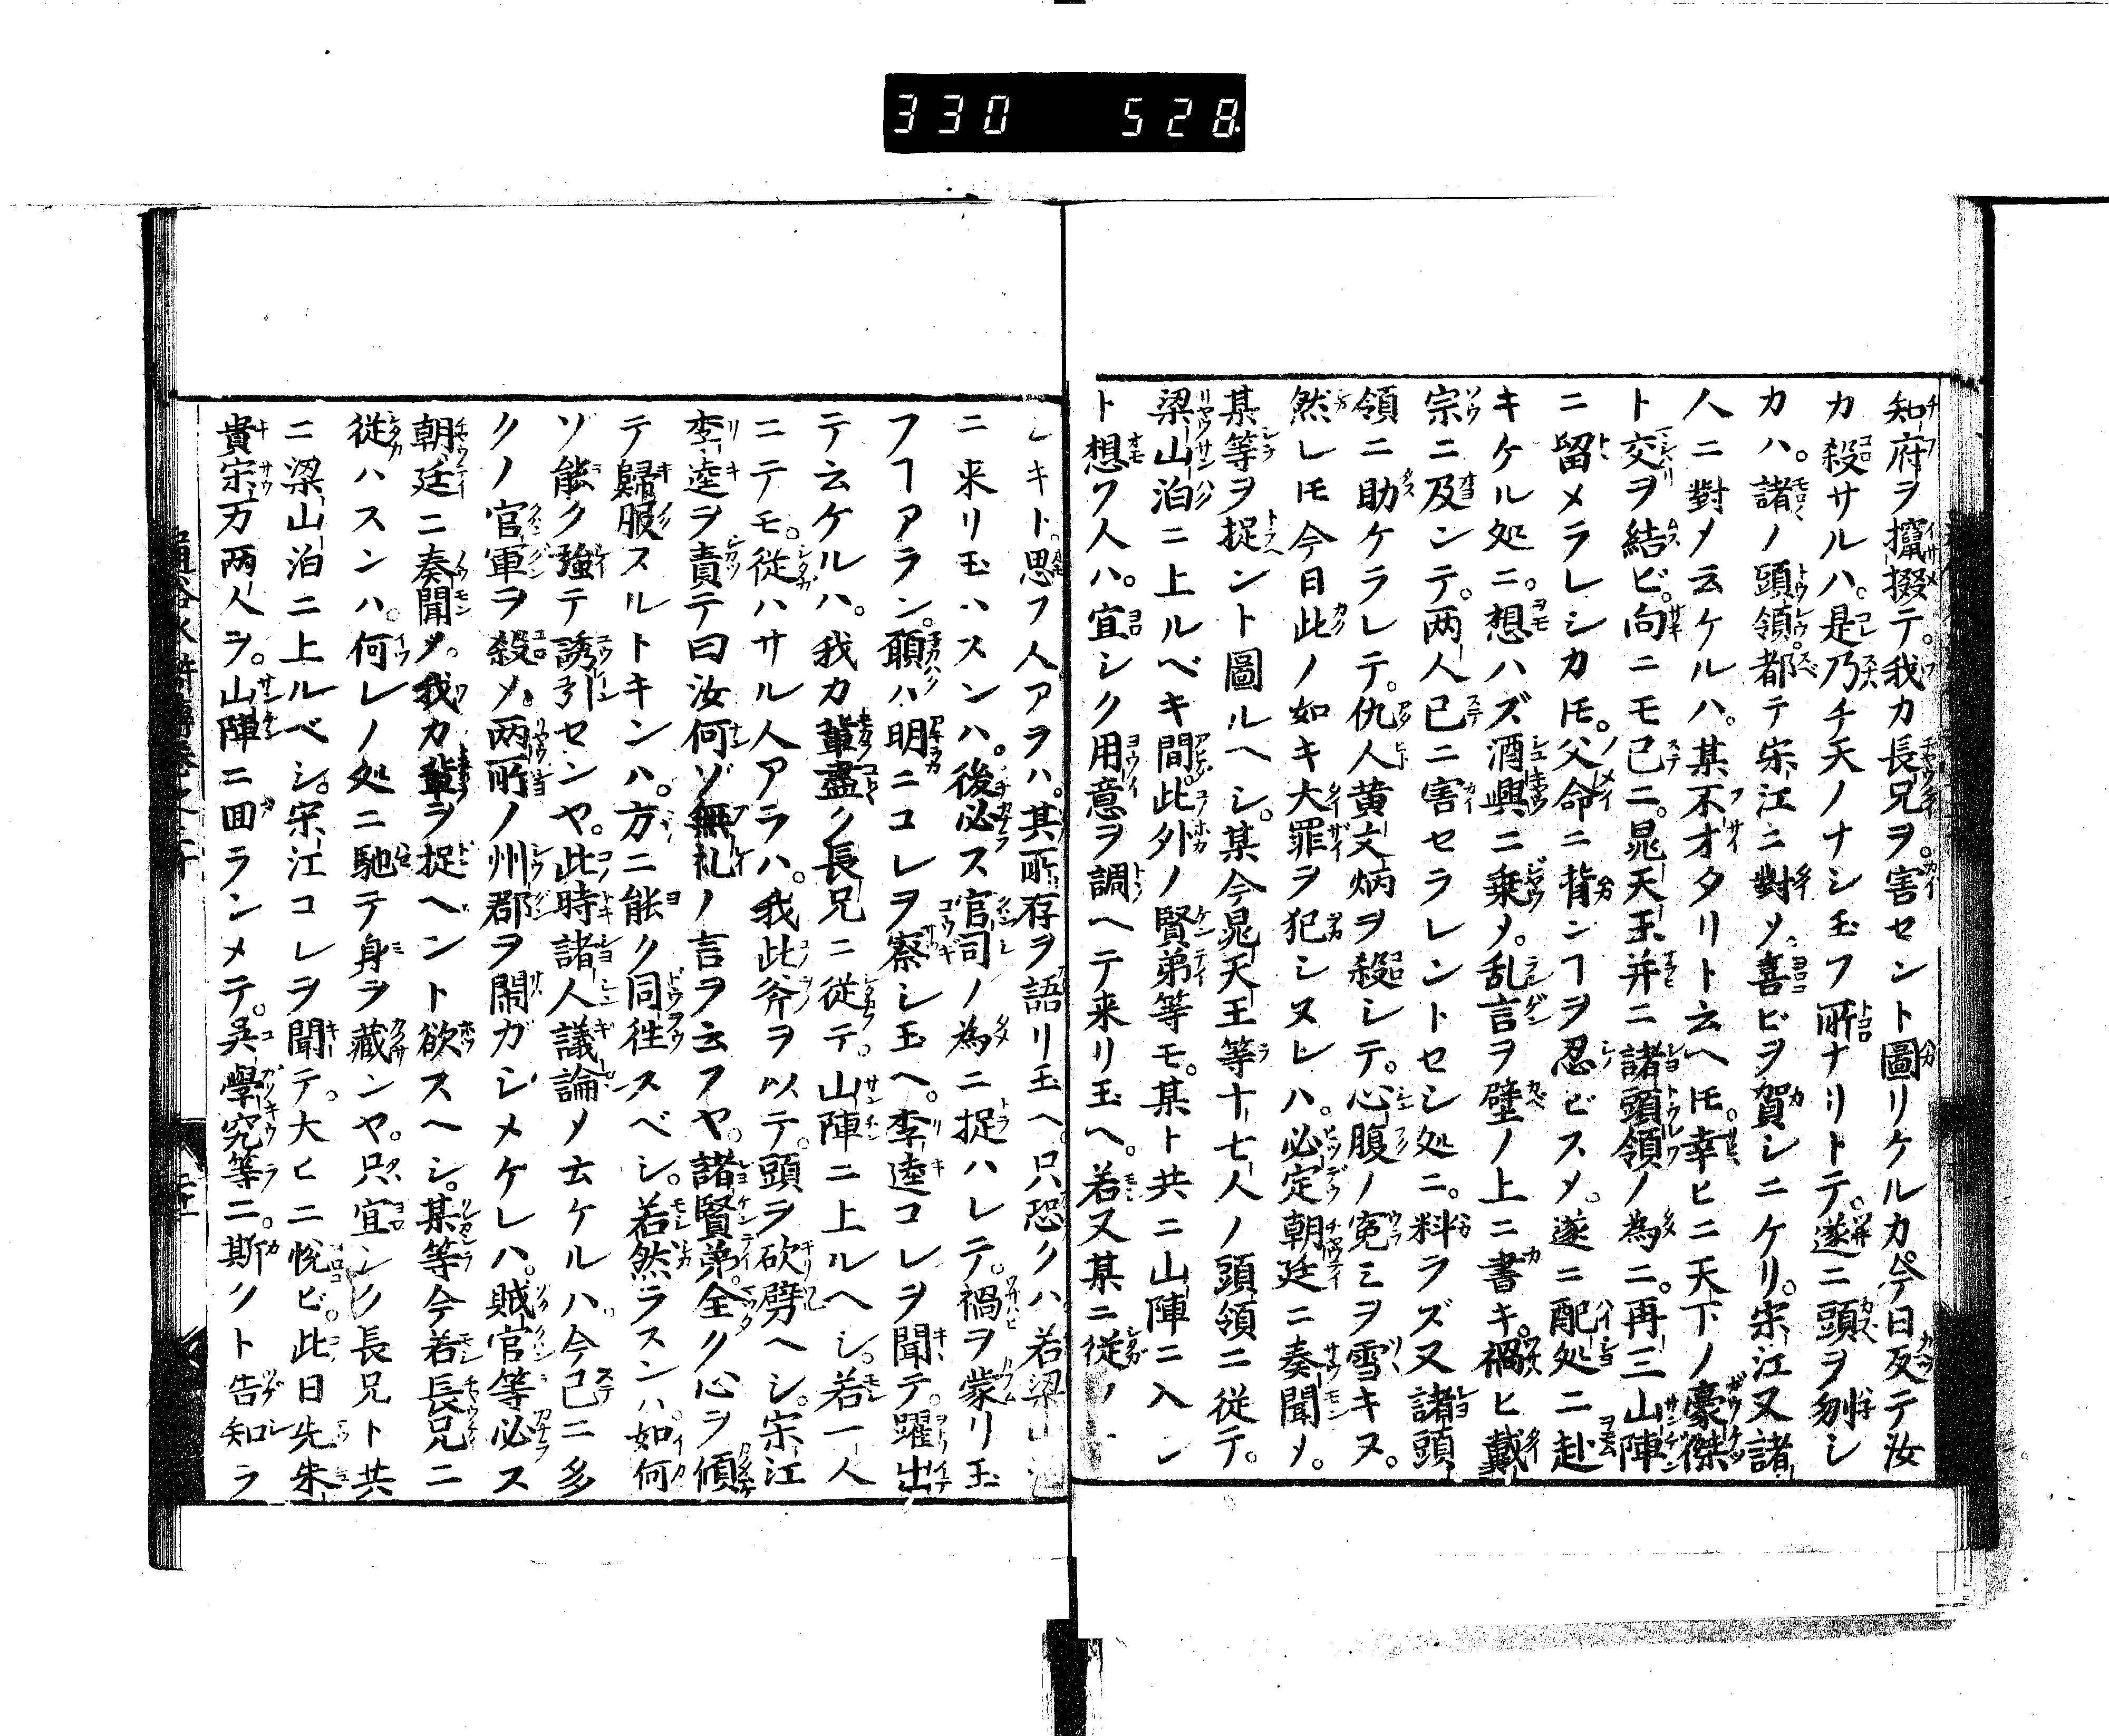 330 528
知府ヲ攛掇テ。我カ長兄ヲ。害セント圖リケルカ。今日反テ汝
カ殺サルハ。是乃チ天ノナシ玉フ所ナリトテ。遂ニ頭ヲ刎シ
カハ。諸ノ頭領。都テ宋江ニ對メ。喜ビヲ賀シニケリ。宋江又諸
人ニ對メ云ケルハ。某不才タリト云ヘ𪜈。幸ヒニ天下ノ豪傑
ト交ヲ結ビ。向ニモ已ニ。晁天王并ニ諸頭領ノ為ニ。再三山陣
ニ留メラレシカ𪜈。父命ニ背ンヿヲ忍ビスメ。遂ニ配処ニ赴
キケル処ニ。想ハズ酒興ニ乗メ。乱言ヲ壁ノ上ニ書キ。禍ヒ戴
宗ニ及ンテ。两人已ニ害セラレントセシ処ニ。料ラズ又諸頭
領ニ助ケラレテ。仇人黄文炳ヲ殺シテ。心腹ノ寃ミヲ雪キヌ。
然レ𪜈今日此ノ如キ大罪ヲ犯シヌレハ。必定朝廷ニ奏聞メ。
某等ヲ捉ント圖ルヘシ。某今晁天王等十七人ノ頭領ニ従テ。
梁山泊ニ上ルベキ間。此外ノ賢弟等モ。某ト共ニ山陣ニ入ン
ト想フ人ハ。宜シク用意ヲ調ヘテ来リ玉ヘ。若又某ニ従ノ
シキト思フ人アラハ。其所存ヲ語リ玉ヘ。只恐クハ若梁山泊
ニ来リ玉ハスンハ。後必ス官司ノ為ニ捉ハレテ。禍ヲ蒙リ玉
フヿアラン。願ハ明ニコレヲ察シ玉ヘ。李逵コレヲ聞テ。躍出
テ云ケルハ。我カ輩盡ク長兄ニ従テ。山陣ニ上ルヘシ。若一人
ニテモ。従ハサル人アラハ。我此斧ヲ以テ。頭ヲ砍劈ヘシ。宋江
李逵ヲ責テ曰汝何ゾ無礼ノ言ヲ云フヤ。諸賢弟。全ク心ヲ傾
テ歸服スルトキンハ。方ニ能ク同往スベシ。若然ラスンハ。如何
ゾ能ク強テ誘引センヤ。此時諸人議論メ云ケルハ。今已ニ多
クノ官軍ヲ殺メ。两所ノ州郡ヲ閙ガシメケレハ。賊官等必ス
朝廷ニ奏聞メ。我カ輩ヲ捉ヘント欲スヘシ。某等今若長兄ニ
従ハスンハ。何レノ処ニ馳テ身ヲ藏ンヤ。只宜シク長兄ト共
ニ梁山泊ニ上ルベシ。宋江コレヲ聞テ。大ヒニ悦ビ。此日先朱
貴宋万两人ヲ。山陣ニ回ランメテ。呉學究等ニ。斯クト告知ラ